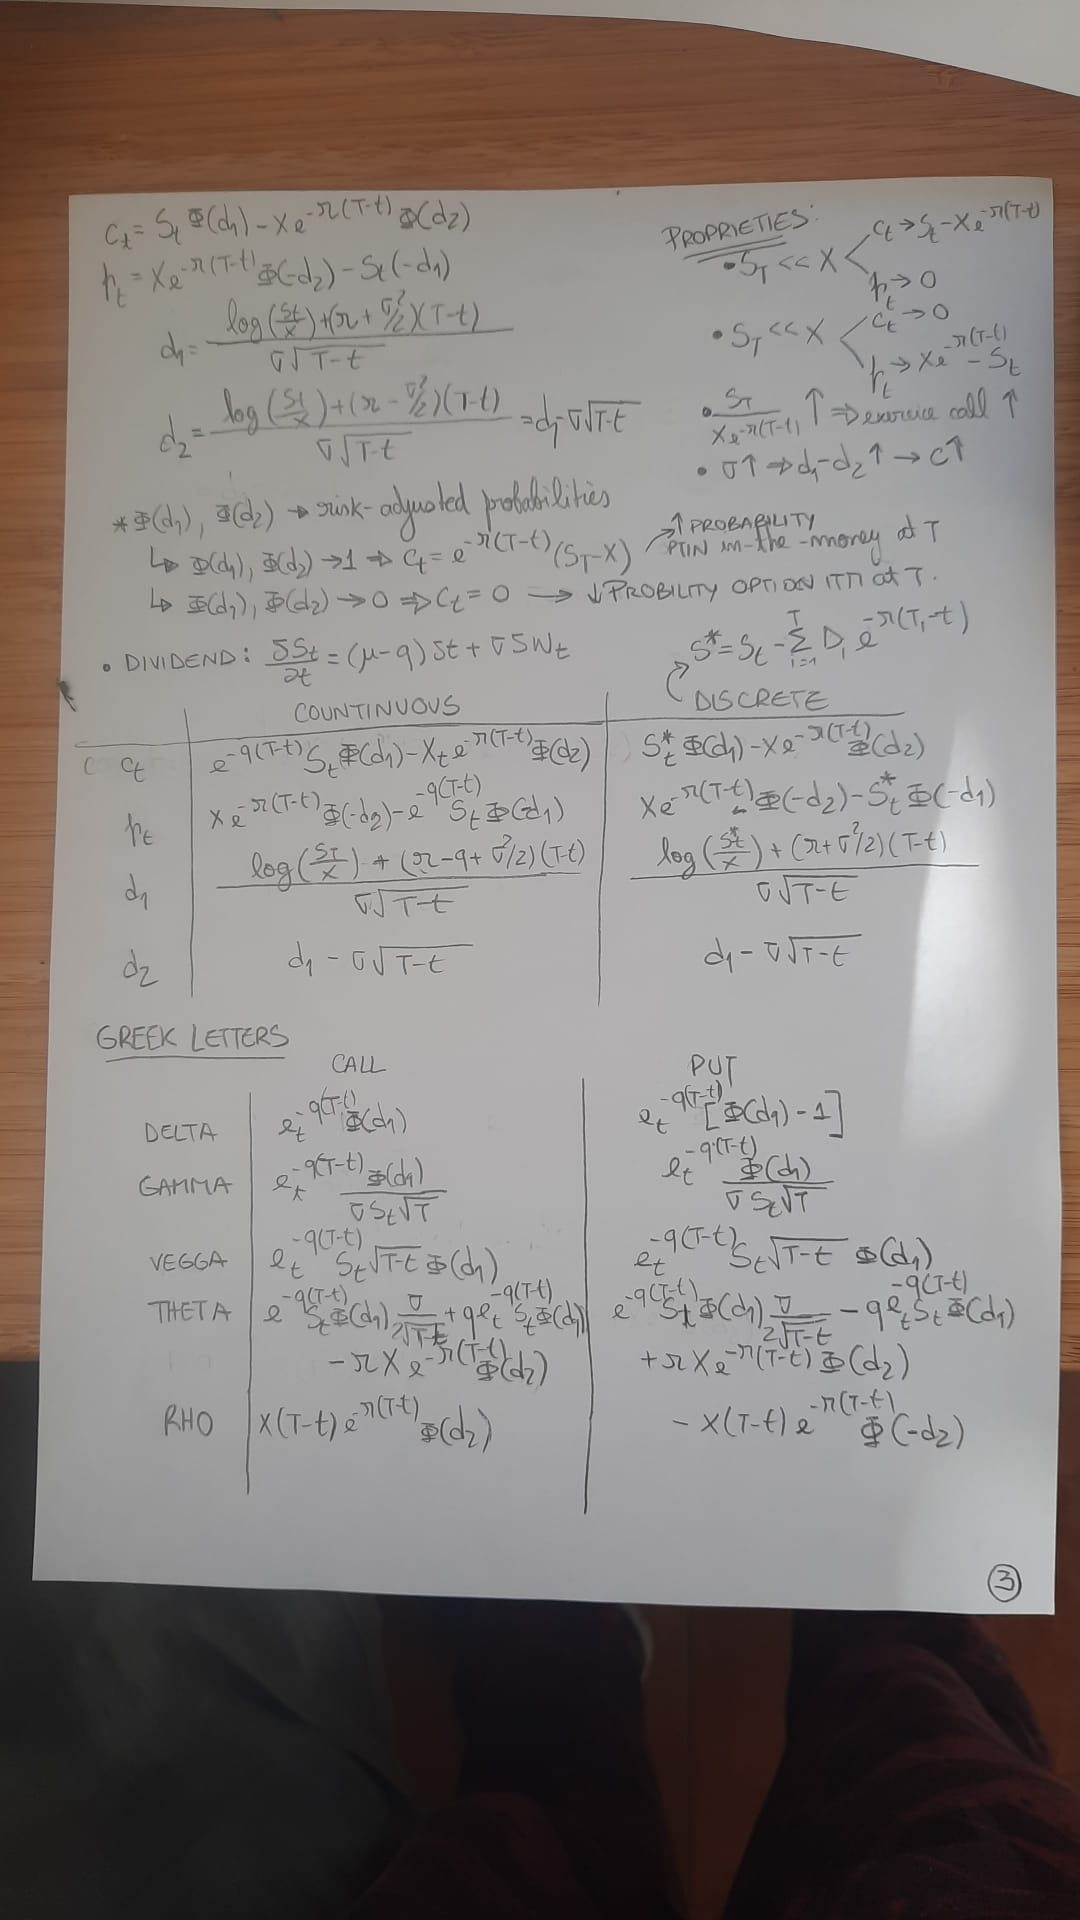 Cₜ = Sₜ Φ(d₁) − Xe^{−r(T−t)} Φ(d₂)
pₜ = Xe^{−r(T−t)} Φ(−d₂) − Sₜ(−d₁)
d₁ = log(Sₜ/X) + (r + σ²/2)(T−t) / σ√(T−t)
d₂ = log(Sₜ/X) + (r − σ²/2)(T−t) / σ√(T−t) = d₁ − σ√(T−t)
PROPRIETIES:
• S_T << X < Cₜ → Sₜ − Xe^{−r(T−t)}
pₜ → 0
• S_T << X < Cₜ → 0
pₜ → Xe^{−r(T−t)} − Sₜ
• S_T / Xe^{−r(T−t)} ↑ ⇒ exercice call ↑
• σ↑ ⇒ d₁−d₂ ↑ → C↑
* Φ(d₁), Φ(d₂) → risk-adjusted probabilities
↳ Φ(d₁), Φ(d₂) → 1 ⇒ Cₜ = e^{−r(T−t)} (S_T − X) ↗ ↑ PROBABILITY
PTIN in-the-money at T
↳ Φ(d₁), Φ(d₂) → 0 ⇒ Cₜ = 0 → ↓ PROBILITY OPTION ITM at T.
• DIVIDEND: δSₜ/∂t = (μ − q) δt + σ δWₜ
S* = Sₜ − Σ_{i=1}^{T} Dᵢ e^{−r(Tᵢ−t)}
COUNTINUOUS DISCRETE
Cₜ e^{−q(T−t)} Sₜ Φ(d₁) − Xₜ e^{−r(T−t)} Φ(d₂) S*ₜ Φ(d₁) − Xe^{−r(T−t)} Φ(d₂)
pₜ Xe^{−r(T−t)} Φ(−d₂) − e^{−q(T−t)} Sₜ Φ(−d₁) Xe^{−r(T−t)} Φ(−d₂) − S*ₜ Φ(−d₁)
d₁ log(S_T/X) + (r − q + σ²/2)(T−t) / σ√(T−t) log(S*ₜ/X) + (r + σ²/2)(T−t) / σ√(T−t)
d₂ d₁ − σ√(T−t) d₁ − σ√(T−t)
GREEK LETTERS
CALL PUT
DELTA eₜ^{−q(T−t)} Φ(d₁) eₜ^{−q(T−t)} [Φ(d₁) − 1]
GAMMA eₜ^{−q(T−t)} Φ(d₁) / σSₜ√T eₜ^{−q(T−t)} Φ(d₁) / σSₜ√T
VEGGA eₜ^{−q(T−t)} Sₜ√(T−t) Φ(d₁) eₜ^{−q(T−t)} Sₜ√(T−t) Φ(d₁)
THETA e^{−q(T−t)} Sₜ Φ(d₁) σ/2√(T−t) + q eₜ^{−q(T−t)} Sₜ Φ(d₁) e^{−q(T−t)} Sₜ Φ(d₁) σ/2√(T−t) − q eₜ^{−q(T−t)} Sₜ Φ(d₁)
− rXe^{−r(T−t)} Φ(d₂) + rXe^{−r(T−t)} Φ(d₂)
RHO X(T−t) e^{−r(T−t)} Φ(d₂) − X(T−t) e^{−r(T−t)} Φ(−d₂)
3